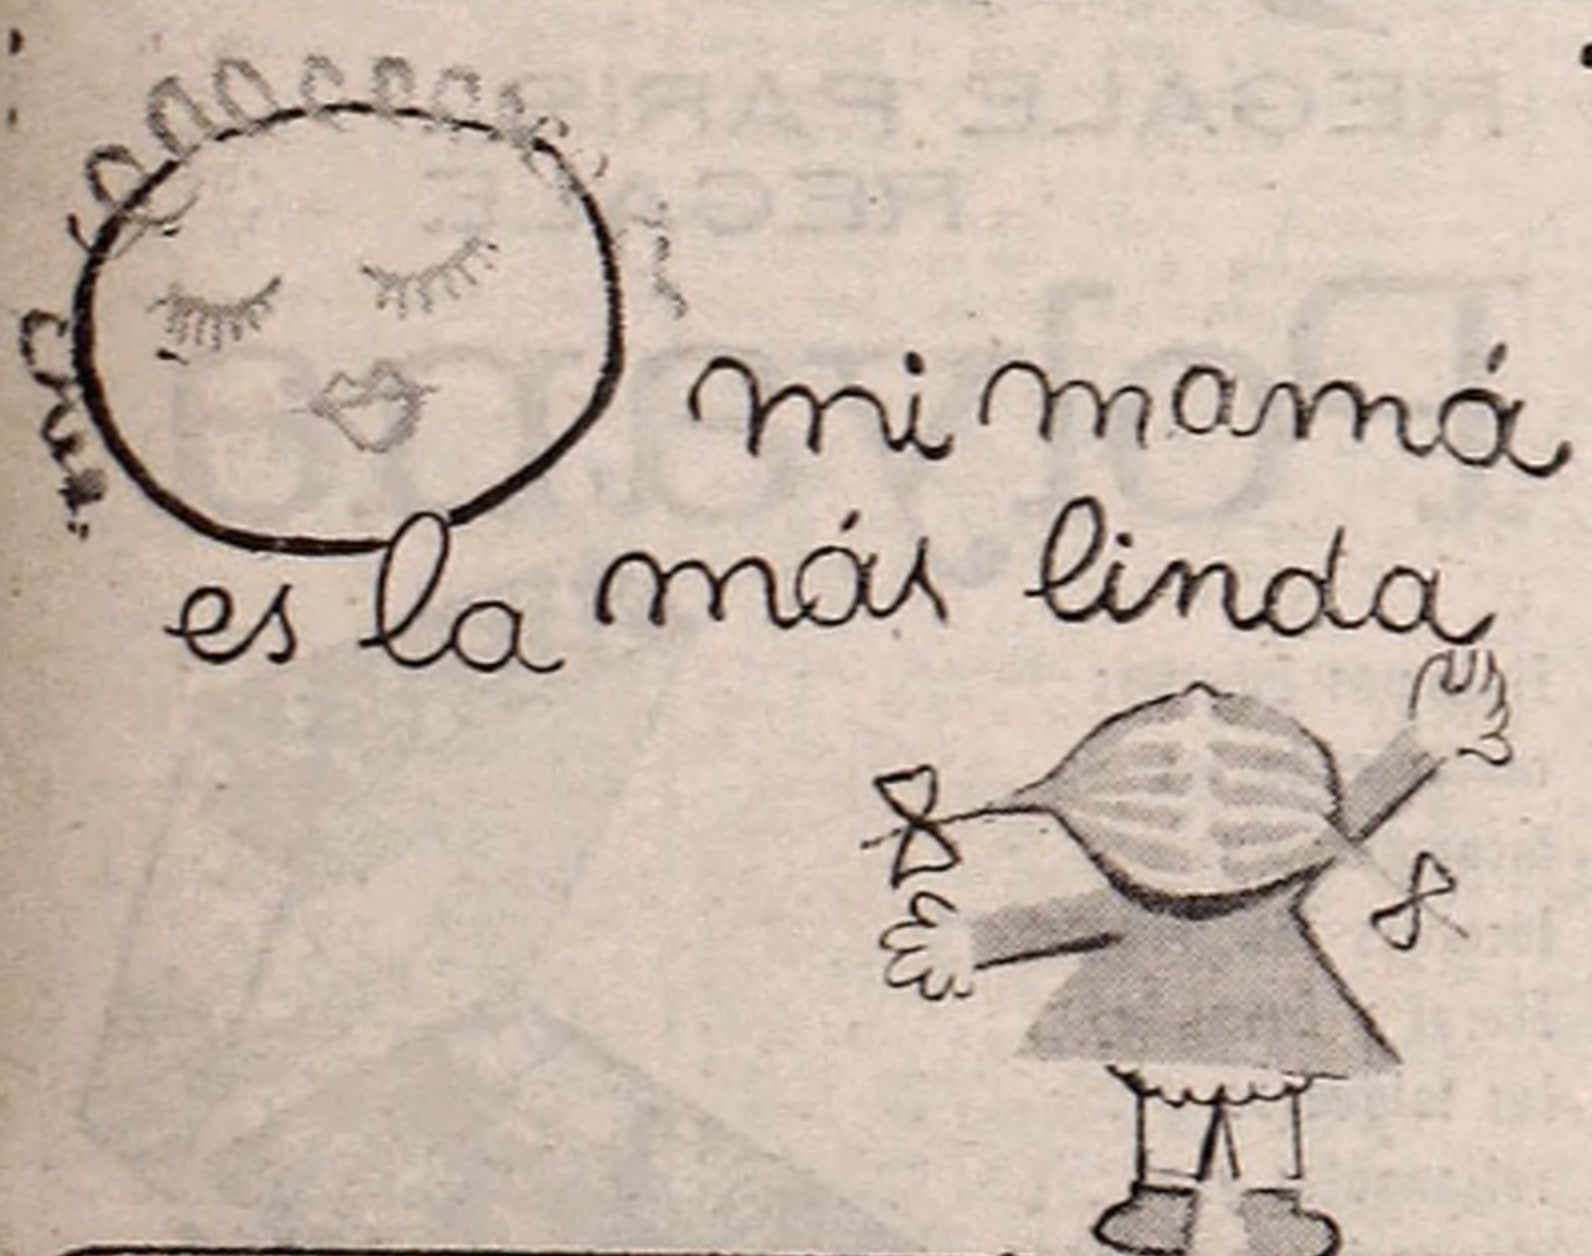 mi mamá
es la más linda